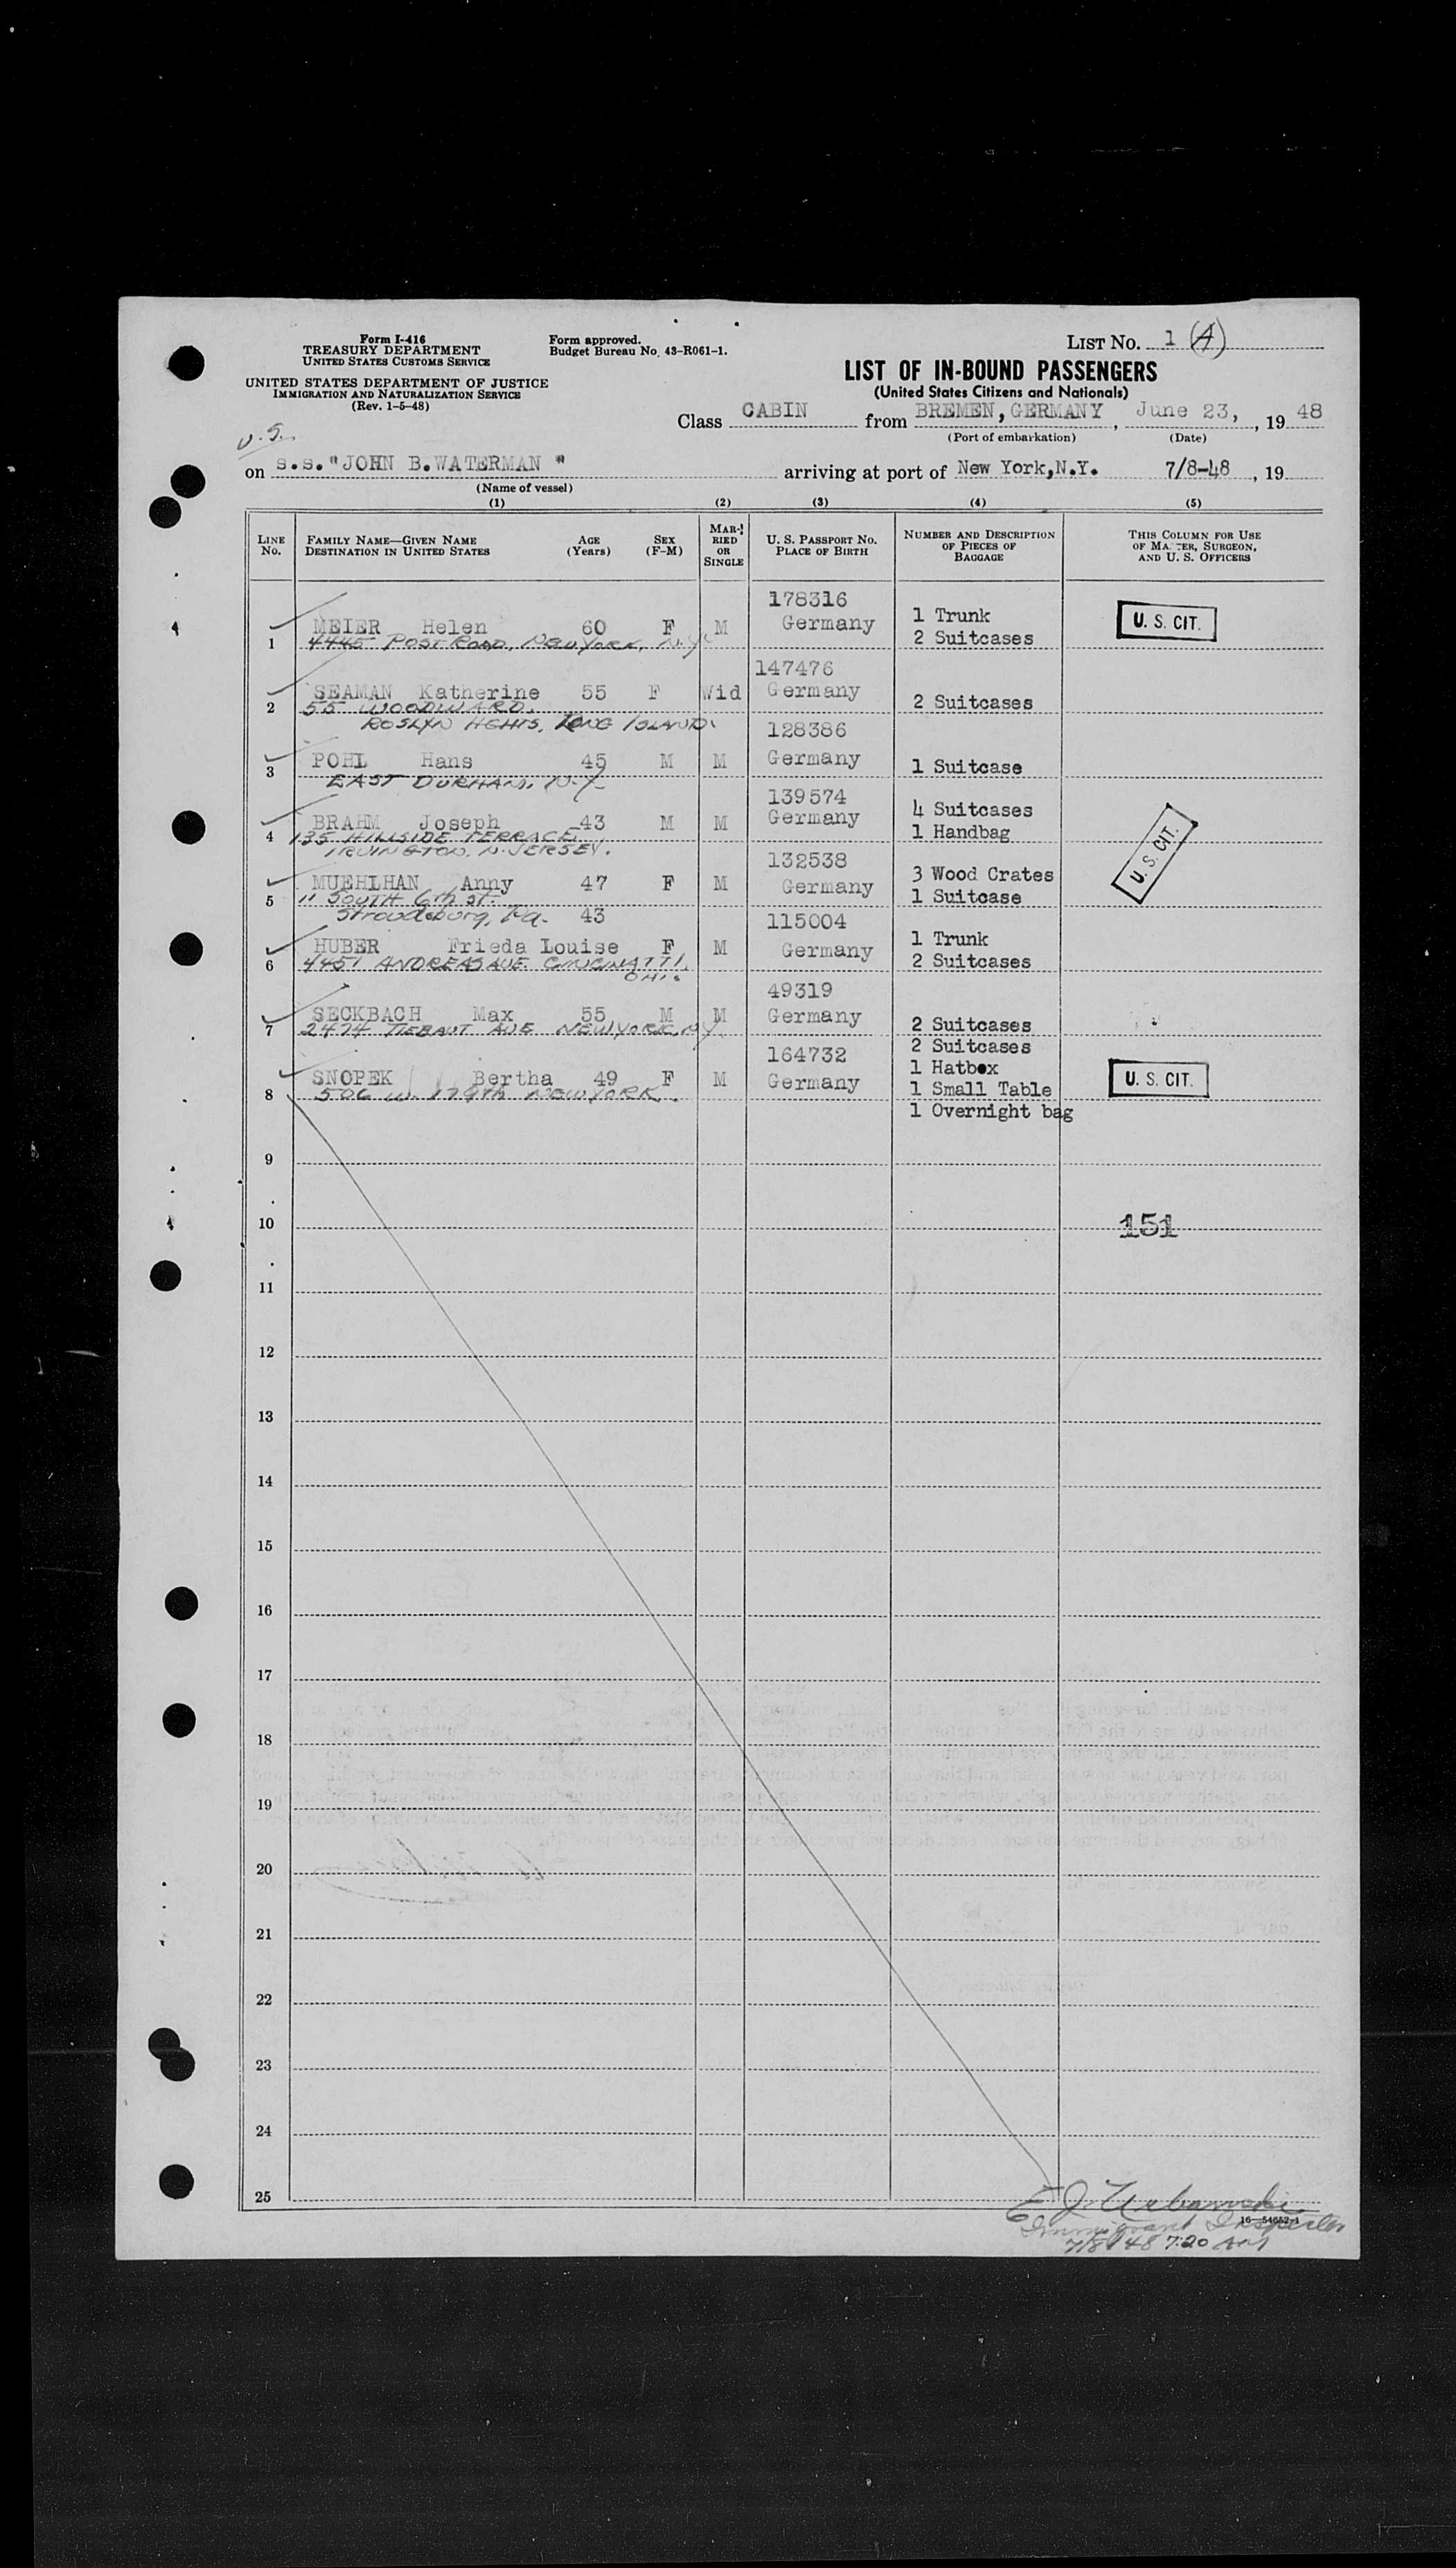 Form I-416
TREASURY DEPARTMENT
UNITED STATES CUSTOMS SERVICE
UNITED STATES DEPARTMENT OF JUSTICE
IMMIGRATION AND NATURALIZATION SERVICE
(Rev. 1-5-48)
Form approved.
Budget Bureau No. 43-R061-1.
LIST NO. 1 (A)
LIST OF IN-BOUND PASSENGERS
(United States Citizens and Nationals)
Class CABIN from BREMEN, GERMANY, June 23, , 19 48
(Port of embarkation) (Date)
U.S.
on S.S."JOHN B.WATERMAN " arriving at port of New York,N.Y. 7/8-48 , 19
(Name of vessel)
(1) (2) (3) (4) (5)
LINE No. FAMILY NAME—GIVEN NAME DESTINATION IN UNITED STATES AGE (Years) SEX (F-M) MARRIED OR SINGLE U. S. PASSPORT NO. PLACE OF BIRTH NUMBER AND DESCRIPTION OF PIECES OF BAGGAGE THIS COLUMN FOR USE OF MASTER, SURGEON, AND U. S. OFFICERS
178316
1 MEIER Helen 60 F M Germany 1 Trunk U. S. CIT.
4445 POST ROAD, NEW YORK, N.Y. 2 Suitcases
147476
2 SEAMAN Katherine 55 F Wid Germany 2 Suitcases
55 WOODWARD.
ROSLYN HGHTS, LONG ISLAND.
128386
3 POHL Hans 45 M M Germany 1 Suitcase
EAST DURHAM. N.Y.
139574 4 Suitcases
4 BRAHM Joseph 43 M M Germany 1 Handbag U. S. CIT.
135 HILLSIDE TERRACE
IRVINGTON. N. JERSEY.
132538 3 Wood Crates
5 MUEHLHAN Anny 47 F M Germany 1 Suitcase
11 South 6th St.
Stroudsburg, Pa. 43
115004 1 Trunk
6 HUBER Frieda Louise F M Germany 2 Suitcases
4451 ANDREAS AVE. CINCINATTI,
OHIO
49319
7 SECKBACH Max 55 M M Germany 2 Suitcases
2474 TIEBAUT AVE NEW YORK, NY.
164732 2 Suitcases
1 Hatbox
8 SNOPEK Bertha 49 F M Germany 1 Small Table U. S. CIT.
506 W. 179th NEW YORK.
1 Overnight bag
9
10 151
11
12
13
14
15
16
17
18
19
20
21
22
23
24
25
E J Urbanski
16—54652-1
Immigrant Inspector
7/8/48 7:20 AM